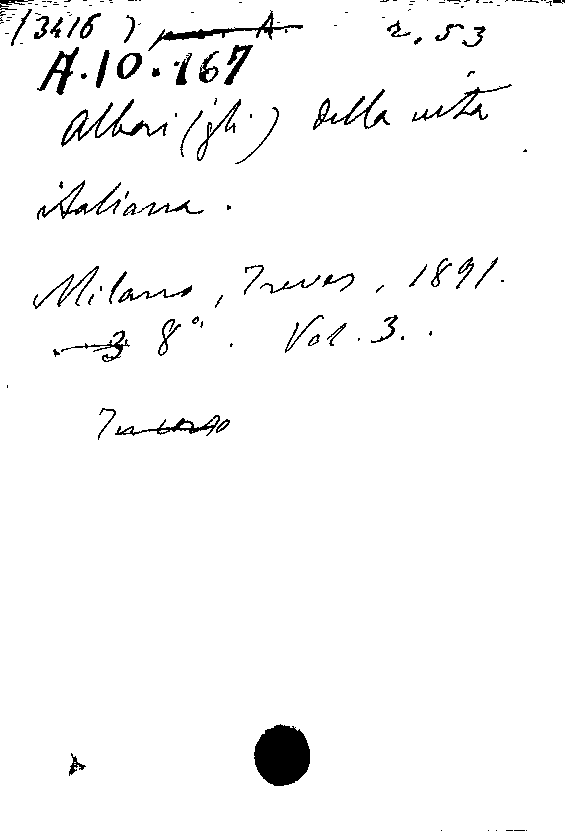 13416 A. r. 53
A.10.167
Albori (gli) della vita
italiana.
Milano, Treves, 1891.
3 8°. Vol. 3.
In corso